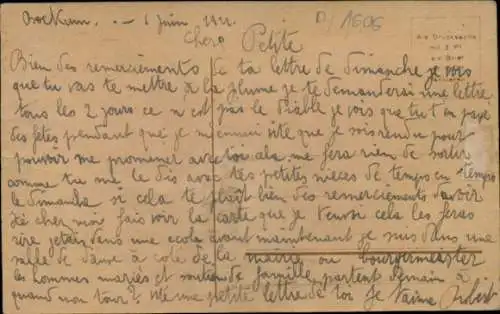 1 Juin
D/1606
Chere Petite
Bien des remerciements ta lettre de dimanche je vois
que tu vas te mettre à la plume je te demanderai une lettre
tous les 2 jours ce n est pas le diable je vois que tu t en paye
des fetes pendant que je m ennui vite que je sois rendu pour
pouvoir me promener avec toi me fera rien de sortir
comme tu me le dis avec tes petites nieces de temps en temps
le dimanche si cela te plait bien des remerciements d'avoir
cher moi fais voir la carte que je t'envoi cela les feras
rire jetais dans une ecole avant maintenant je suis dans une
salle de danse à coté de la mairie ou bourgermeister
les hommes mariés et soutien de famille partent demain à
quand mon tour? une petite lettre de toi Je t'aime